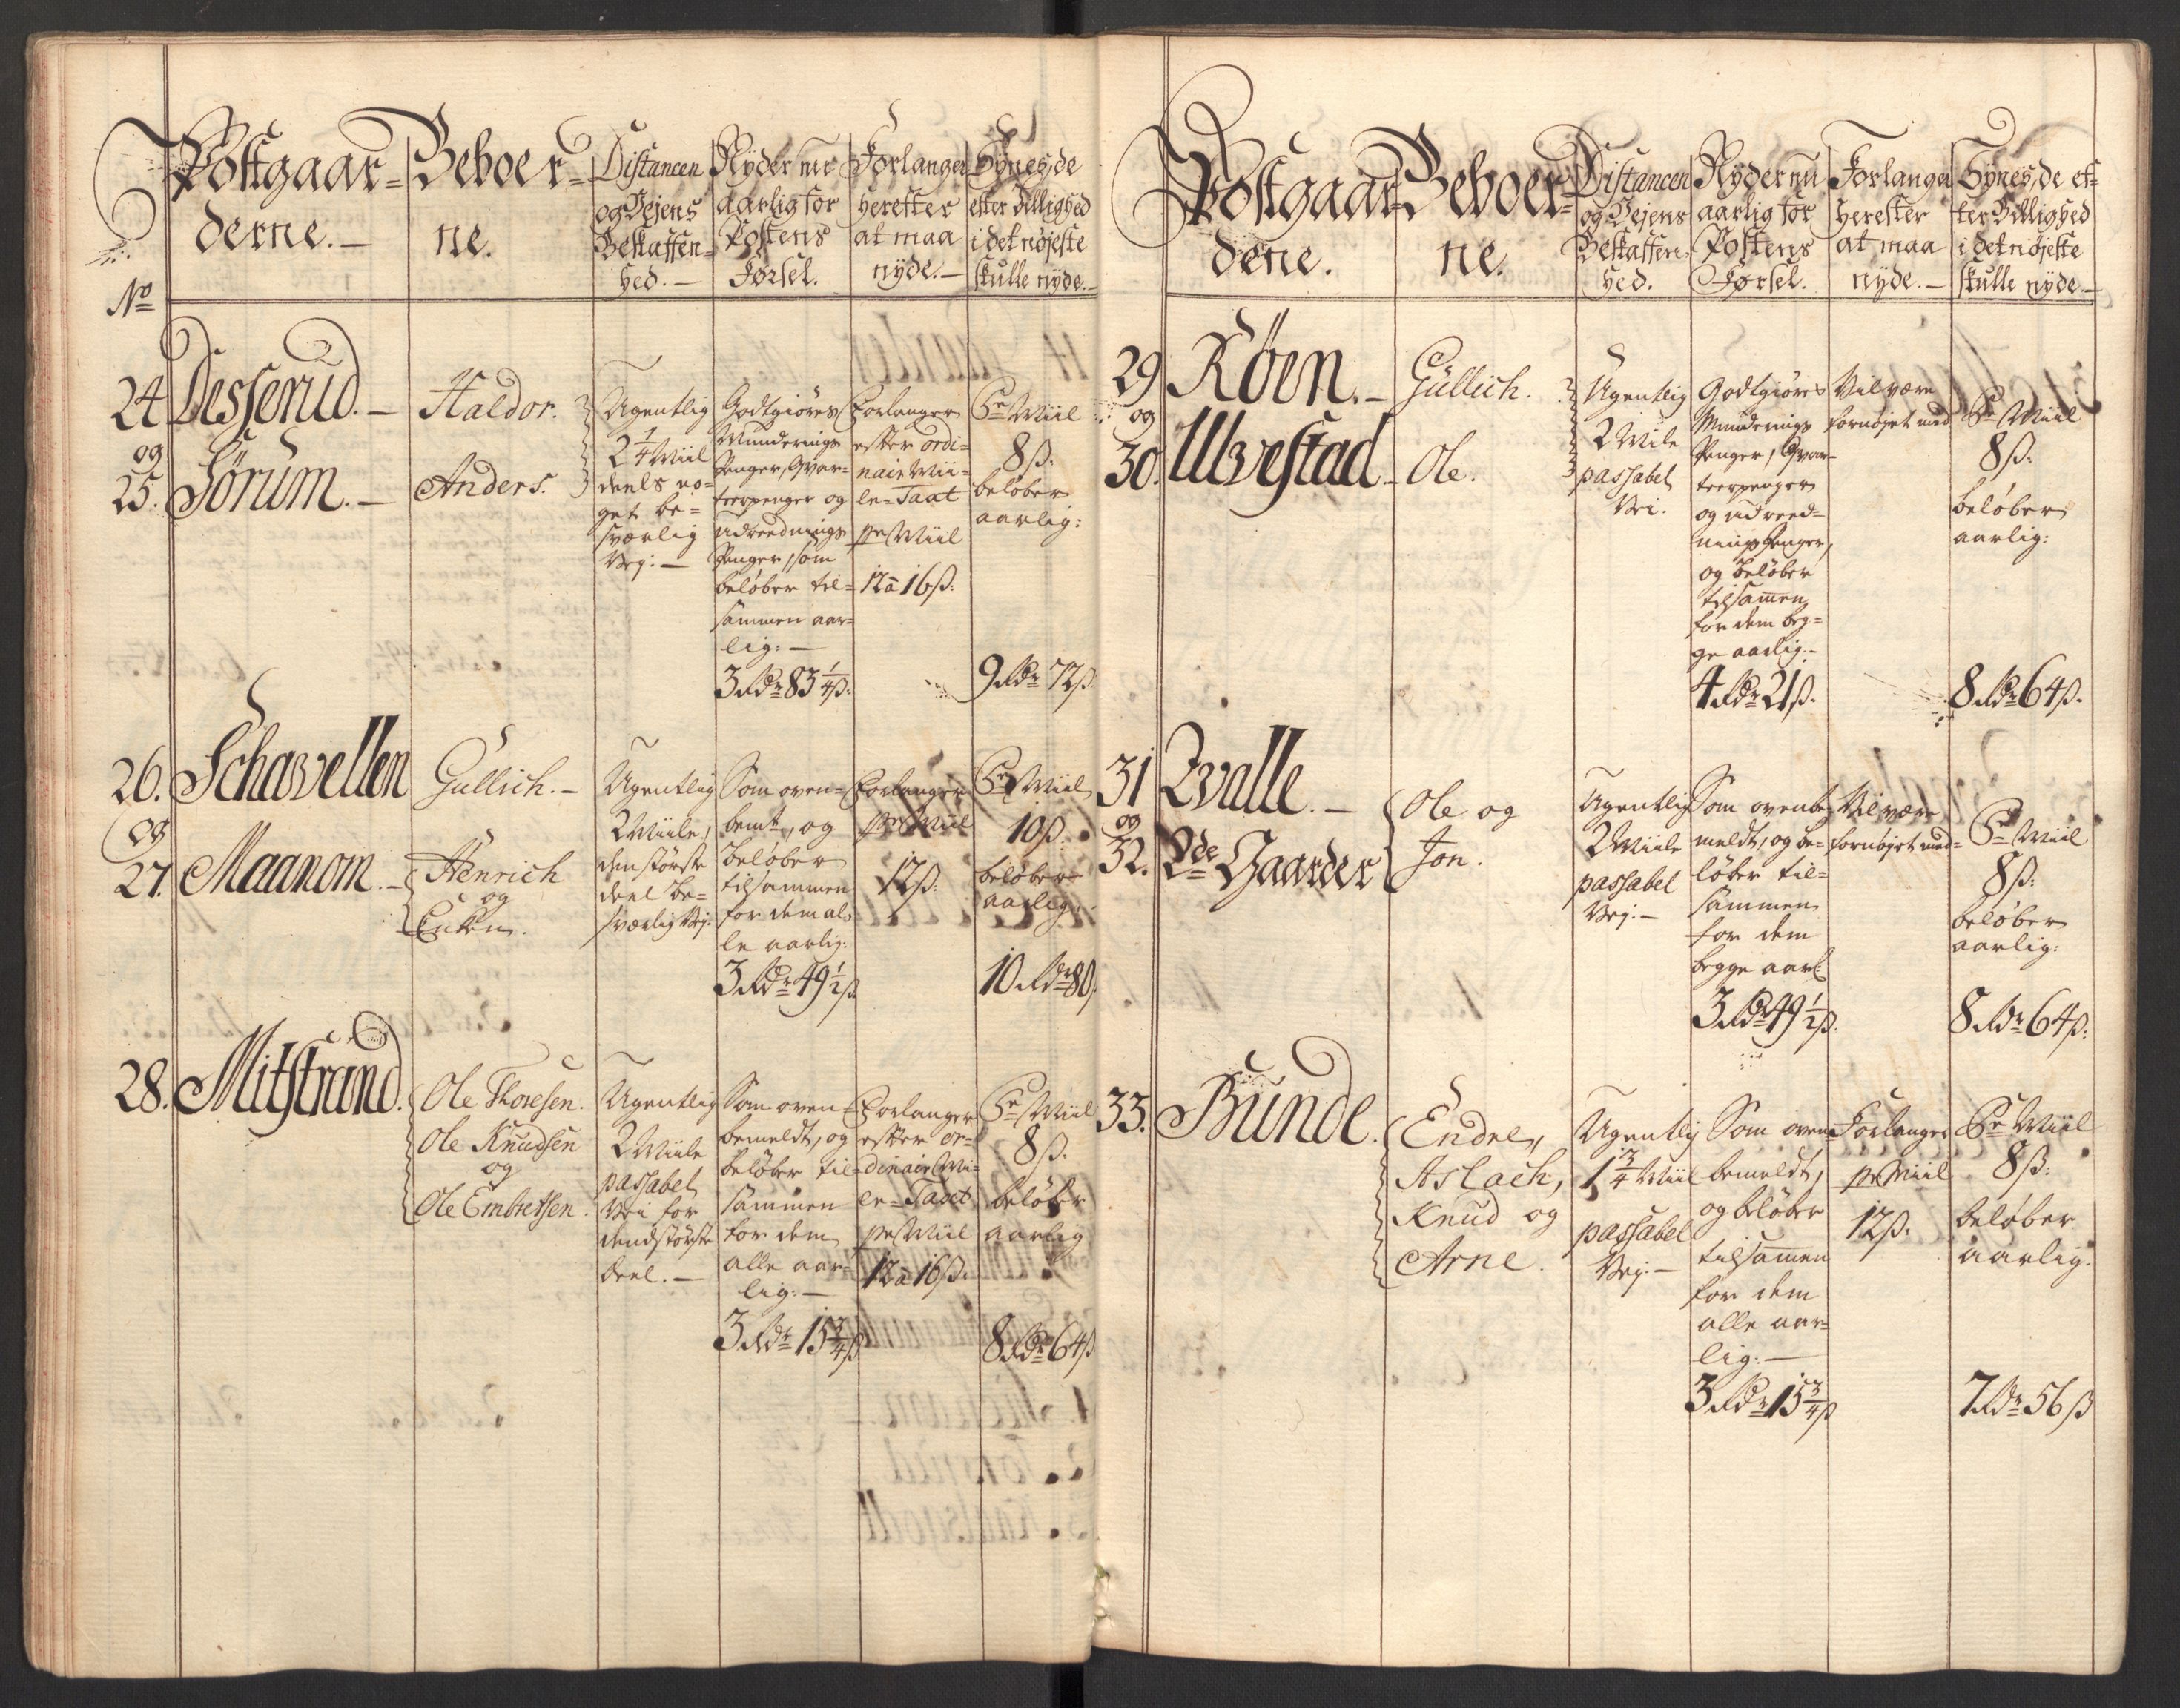 Postgaar=
derne.—
Beboer=
ne.
Distancen
og Vejens
Beskaffen=
hed.—
Nyder nu
aarlig for
Postens
Førsel.
Forlanger
herefter
at maa
nyde.—
Synes, de
efter Billighed
i det nøjeste
skulle nyde.—
No
24
og
25.
Desserud.—
Sørum.—
Haldor.
Anders.
Ugentlig
2 1/4 Miil
deels no=
get be=
sværlig
Vej:—
Godtgiøres
Munderings
Penger, Qvar=
teerpenger og
udreednings
Penger, som
beløber til=
sammen aar=
lig:—
3 Rdr 83 1/4 ß.
Forlanger
efter ordi=
nair Mii=
le=Taxt
pr Miil
12 à 16 ß.
Pr Miil
8 ß.
beløber
aarlig:
9 Rdr 72 ß.
26.
og
27.
Schavellen
Maanom.—
Gullich.—
Henrich
og
Enken.
Ugentlig
2 Miile,
den störste
deel be=
sværlig Vej.
Som oven=
bemt, og
beløber
tilsammen
for dem al=
le aarlig:
3 Rdr 49 1/2 ß
Forlanger
pr Miil
12 ß.
Pr Miil
10 ß.
beløber
aarlig.
10 Rdr 80.
28.
Mitstrand.
Ole Thoresen.
Ole Knudsen
og
Ole Embretsen.
Ugentlig
2 Miile
passabel
Vei for
dend störste
deel.—
Som oven=
bemeldt, og
beløber til=
sammen
for dem
alle aar=
lig:—
3 Rdr 15 3/4 ß
Forlanger
efter or=
dinair Mi=
le=Taxt
pr Miil
12 à 16 ß.
Pr Miil
8 ß.
beløber
aarlig
8 Rdr 64 ß
Postgaar=
dene.
Beboer=
ne.
Distancen
og Vejens
Beskaffen.
hed.
Nyder nu
aarlig for
Postens
Førsel.
Forlanger
herefter
at maa
nyde.—
Synes, de ef=
ter Billighed
i det nøjeste
skulle nyde.—
29
og
30.
Røen.—
Ulvestad.—
Gullich.
Ole.
Ugentlig
2 Mile
passabel
Vei.
Godtgiøres
Munderings
Penger, Qvar=
teerpenger
og udreed=
nings Penger,
og beløber
tilsamen
for dem beg=
ge aarlig:—
4 Rdr 21 ß.
Vil være
fornøjet med
Pr Miil
8 ß.
beløber
aarlig:
8 Rdr 64 ß.
31
og
32.
Qvalle.—
2de Gaarder
Ole og
Jon.
Ugentlig
2 Miile
passabel
Vej:—
Som ovenbe
meldt, og be=
løber til=
sammen
for dem
begge aarl:
3 Rdr 49 1/2 ß.
Vil være
fornøjet med=
Pr Miil
8 ß.
beløber
aarlig:
8 Rdr 64 ß.
33.
Bunde.
Endre,
Aslach,
Knud og
Arne.
Ugentlig
1 3/4 Miil
passabel
Vej:—
Som oven
bemeldt,
og beløber
tilsamen
for dem
alle aar=
lig:—
3 Rdr 15 3/4 ß
Forlanger
pr Miil
12 ß.
Pr Miil
8 ß.
beløber
aarlig.
7 Rdr 56 ß